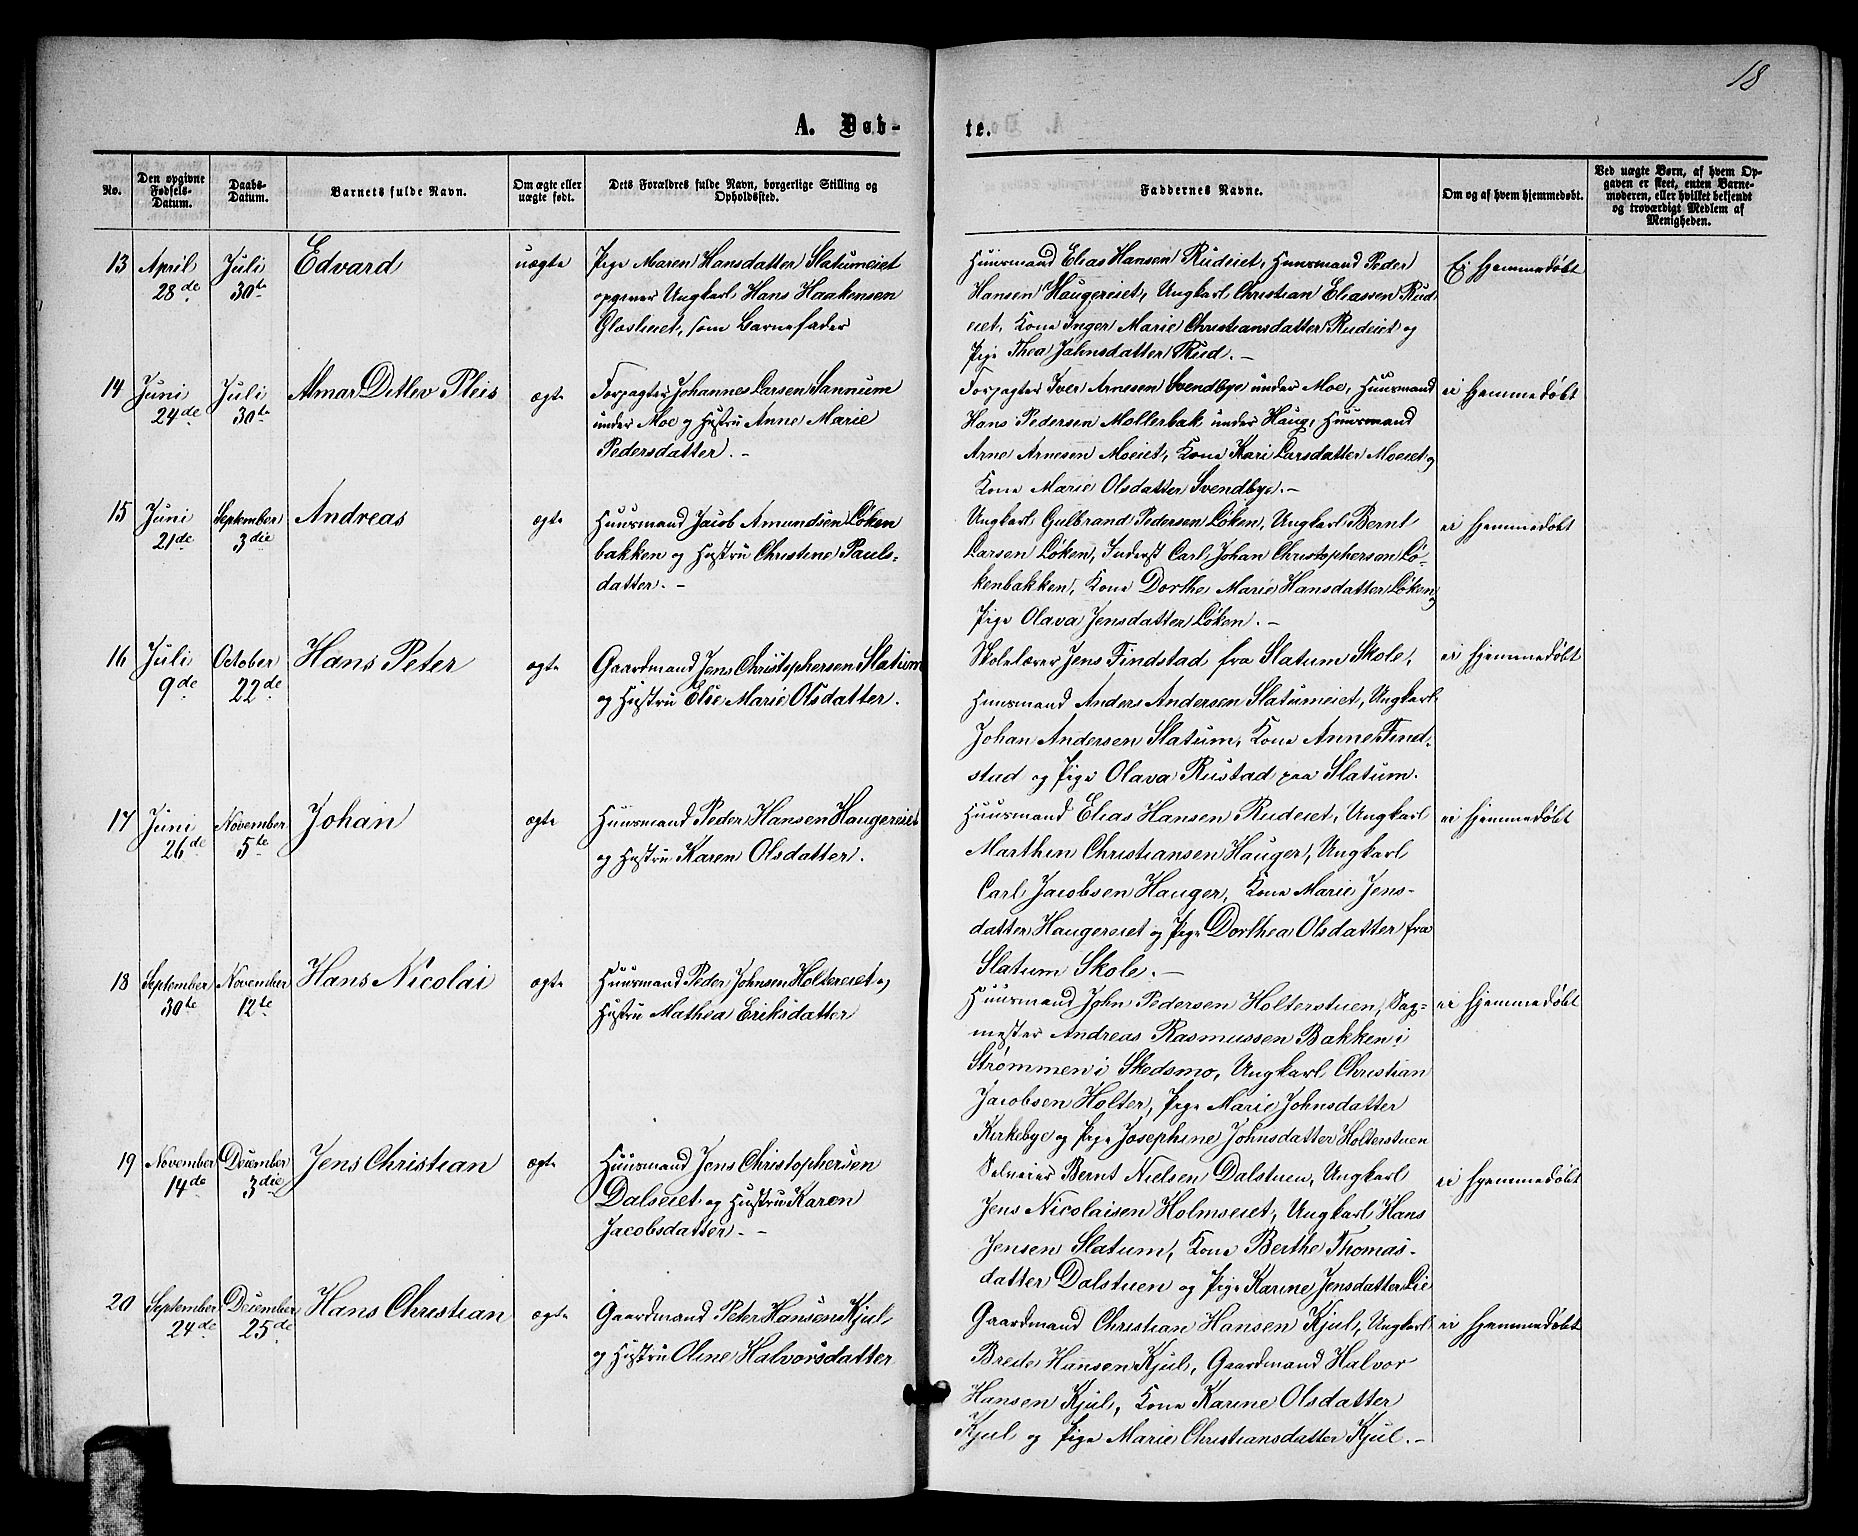 18
A. Døb-
te.
No.
Den opgivne Fødsels-Datum.
Daabs-Datum.
Barnets fulde Navn.
Om ægte eller uægte født.
Dets Forældres fulde Navn, borgerlige Stilling og Opholdssted.
Faddernes Navne.
Om og af hvem hjemmedøbt.
Ved uægte Børn, af hvem Opgaven er skeet, enten Barnemoderen, eller hvilket bekjendt og troværdigt Medlem af Menigheden.
13 April 28de Juli 30te Edvard uægte
Pige Maren Hansdatter Slatumeiet
opgiver Ungkarl Hans Haakensen
som Barnefader
Huusmand Elias Hansen Rudeiet, Huusmand Peder
Hansen Haugereiet, Ungkarl Christian Eliassen Rud
eiet, Kone Inger Marie Christiansdatter Rudeiet og
Pige Thea Johnsdatter Rud. –
Ei hjemmedøbt
14 Juni 24de Juli 30te Almar Ditlev Pleis ægte
Forpagter Johannes Larsen Sannum
under Moe og Hustru Anne Marie
Pedersdatter. –
Forpagter Iver Arnesen Svendbye under Moe, Huusmand
Hans Pedersen Mollerbak under Haug, Huusmand
Arne Arnesen Moeiet, Kone Kari Larsdatter Moeiet og
Kone Marie Olsdatter Svendbye. –
ei hjemmedøbt
15 Juni 21de September 3die Andreas ægte
Huusmand Jacob Amundsen Løken
bakken og Hustru Christine Pauls-
datter. –
Ungkarl Gulbrand Pedersen Løken, Ungkarl Bernt
Larsen Løken, Inderst Carl Johan Christophersen Lø-
kenbakken, Kone Dorthe Marie Hansdatter Løken og
Pige Olava Jensdatter Løken. –
ei hjemmedøbt
16 Juli 9de October 22de Hans Peter ægte
Gaardmand Jens Christophersen Slatum
og Hustru Else Marie Olsdatter.
Skolelærer Jens Findstad fra Slatum Skole,
Huusmand Anders Andersen Slatumeiet, Ungkarl
Johan Andersen Slatum, Kone Anne Find-
stad og Pige Olava Rustad paa Slatum.
ei hjemmedøbt
17 Juni 26de November 5te Johan ægte
Huusmand Peder Hansen Haugereiet
og Hustru Karen Olsdatter.
Huusmand Elias Hansen Rudeiet, Ungkarl
Marthin Christiansen Hauger, Ungkarl
Carl Jacobsen Hauger, Kone Marie Jens-
datter Haugereiet og Pige Dorthea Olsdatter fra
Slatum Skole. –
ei hjemmedøbt
18 September 30te November 12te Hans Nicolai ægte
Huusmand Peder Johnsen Holtereiet og
Hustru Mathea Eriksdatter
Huusmand John Pedersen Holterstuen, Sag-
mester Andreas Rasmussen Bakken i
Strømmen i Skedsmo, Ungkarl Christian
Jacobsen Holter, Pige Marie Johnsdatter
Kirkebye og Pige Josephine Johnsdatter Holterstuen
ei hjemmedøbt
19 November 14de December 3die Jens Christian ægte
Huusmand Jens Christophersen
Dalseiet og Hustru Karen
Jacobsdatter. –
Selveier Bernt Nielsen Dalstuen, Ungkarl
Jens Nicolaisen Holmseiet, Ungkarl Hans
Jensen Slatum, Kone Berthe Thomas-
datter Dalstuen og Pige Karine Jensdatter Lie
ei hjemmedøbt
20 September 24de December 25de Hans Christian ægte
Gaardmand Peter Hansen Kjul
og Hustru Oline Halvorsdatter
Gaardmand Christian Hansen Kjul, Ungkarl
Brede Hansen Kjul, Gaardmand Halvor
Hansen Kjul, Kone Karine Olsdatter
Kjul og Pige Marie Christiansdatter Kjul. –
ei hjemmedøbt